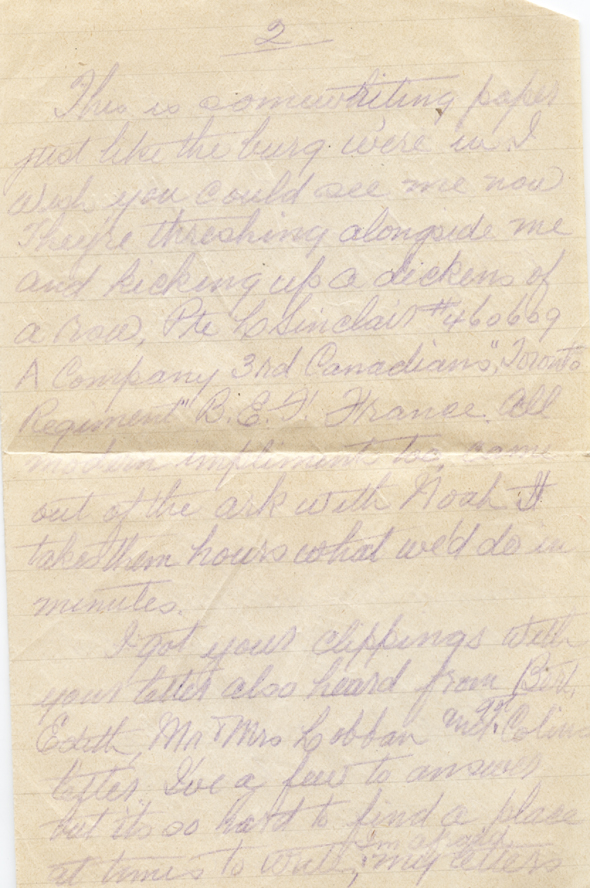 2
This is some writing paper
just like the burg we're in. I
wish you could see me now
They're threshing alongside me
and kicking up a dickens of
a row, Pte L Sinclair #460609
A Company 3rd Canadians, "Toronto
Regiment" B.E.F. France. All
modern impliments too, came
out of the ark with Noah It
takes them hours what we'd do in
minutes.
I got your clippings with
your letter also heard from Bert,
Edith, Mr & Mrs Lobban and got Colins
letter I've a few to answer
but its so hard to find a place
at times to write, I'm afraid my letters